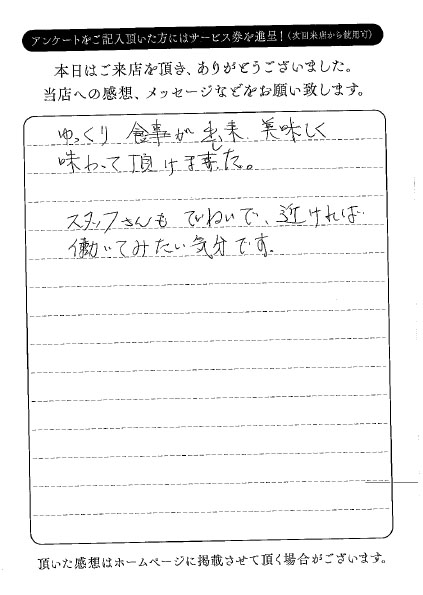 アンケートをご記入頂いた方にはサービス券を進呈！（次回来店から使用可）
本日はご来店を頂き、ありがとうございました。
当店への感想、メッセージなどをお願い致します。
ゆっくり 食事が出来 美味しく
味わって頂けました。
スタッフさんも ていねいで、近ければ
働いてみたい気分です。
頂いた感想はホームページに掲載させて頂く場合がございます。